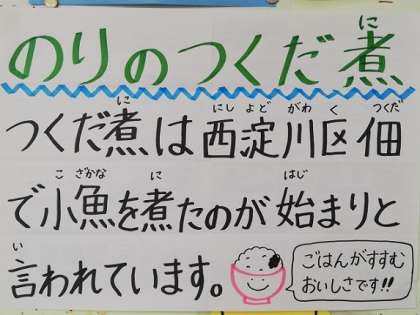 のりのつくだ煮
に
つくだ煮は西淀川区佃
に にし よど がわ く つくだ
で小魚を煮たのが始まりと
こ ざかな に はじ
言われています。
い
ごはんがすすむ
おいしさです!!